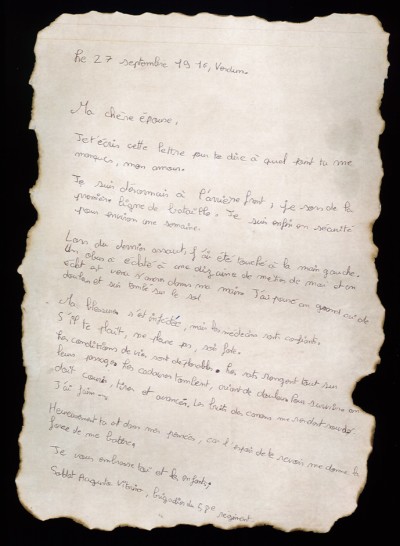 Le 27 septembre 1916, Verdun.
Ma chère épouse,
Je t'écris cette lettre pour te dire à quel point tu me
manques, mon amour.
Je suis désormais à l'arrière front, je sors de la
première ligne de bataille. Je suis enfin en sécurité
pour environ une semaine.
Lors du dernier assaut, j'ai été touché à la main gauche.
Un obus a éclaté à une dizaine de mètres de moi et un
éclat est venu dans ma main. J'ai poussé un grand cri de
douleur et suis tombé sur le sol
Ma blessure s'est infectée, mais les médecins sont confiants.
S'il te plaît, ne pleure pas, sois forte.
Les conditions de vie sont déplorables. Les rats rongent tout sur
leur passage. Les cadavres tombent, crient de douleur. Pour survivre on
doit courir, tirer et avancer. Le bruit des canons me rendent sourd.
J'ai faim
Heureusement tu es dans mes pensées, car l'espoir de te revoir me donne la
force de me battre.
Je vous embrasse toi et les enfants.
Soldat Augustin, brigadier du 58e regiment